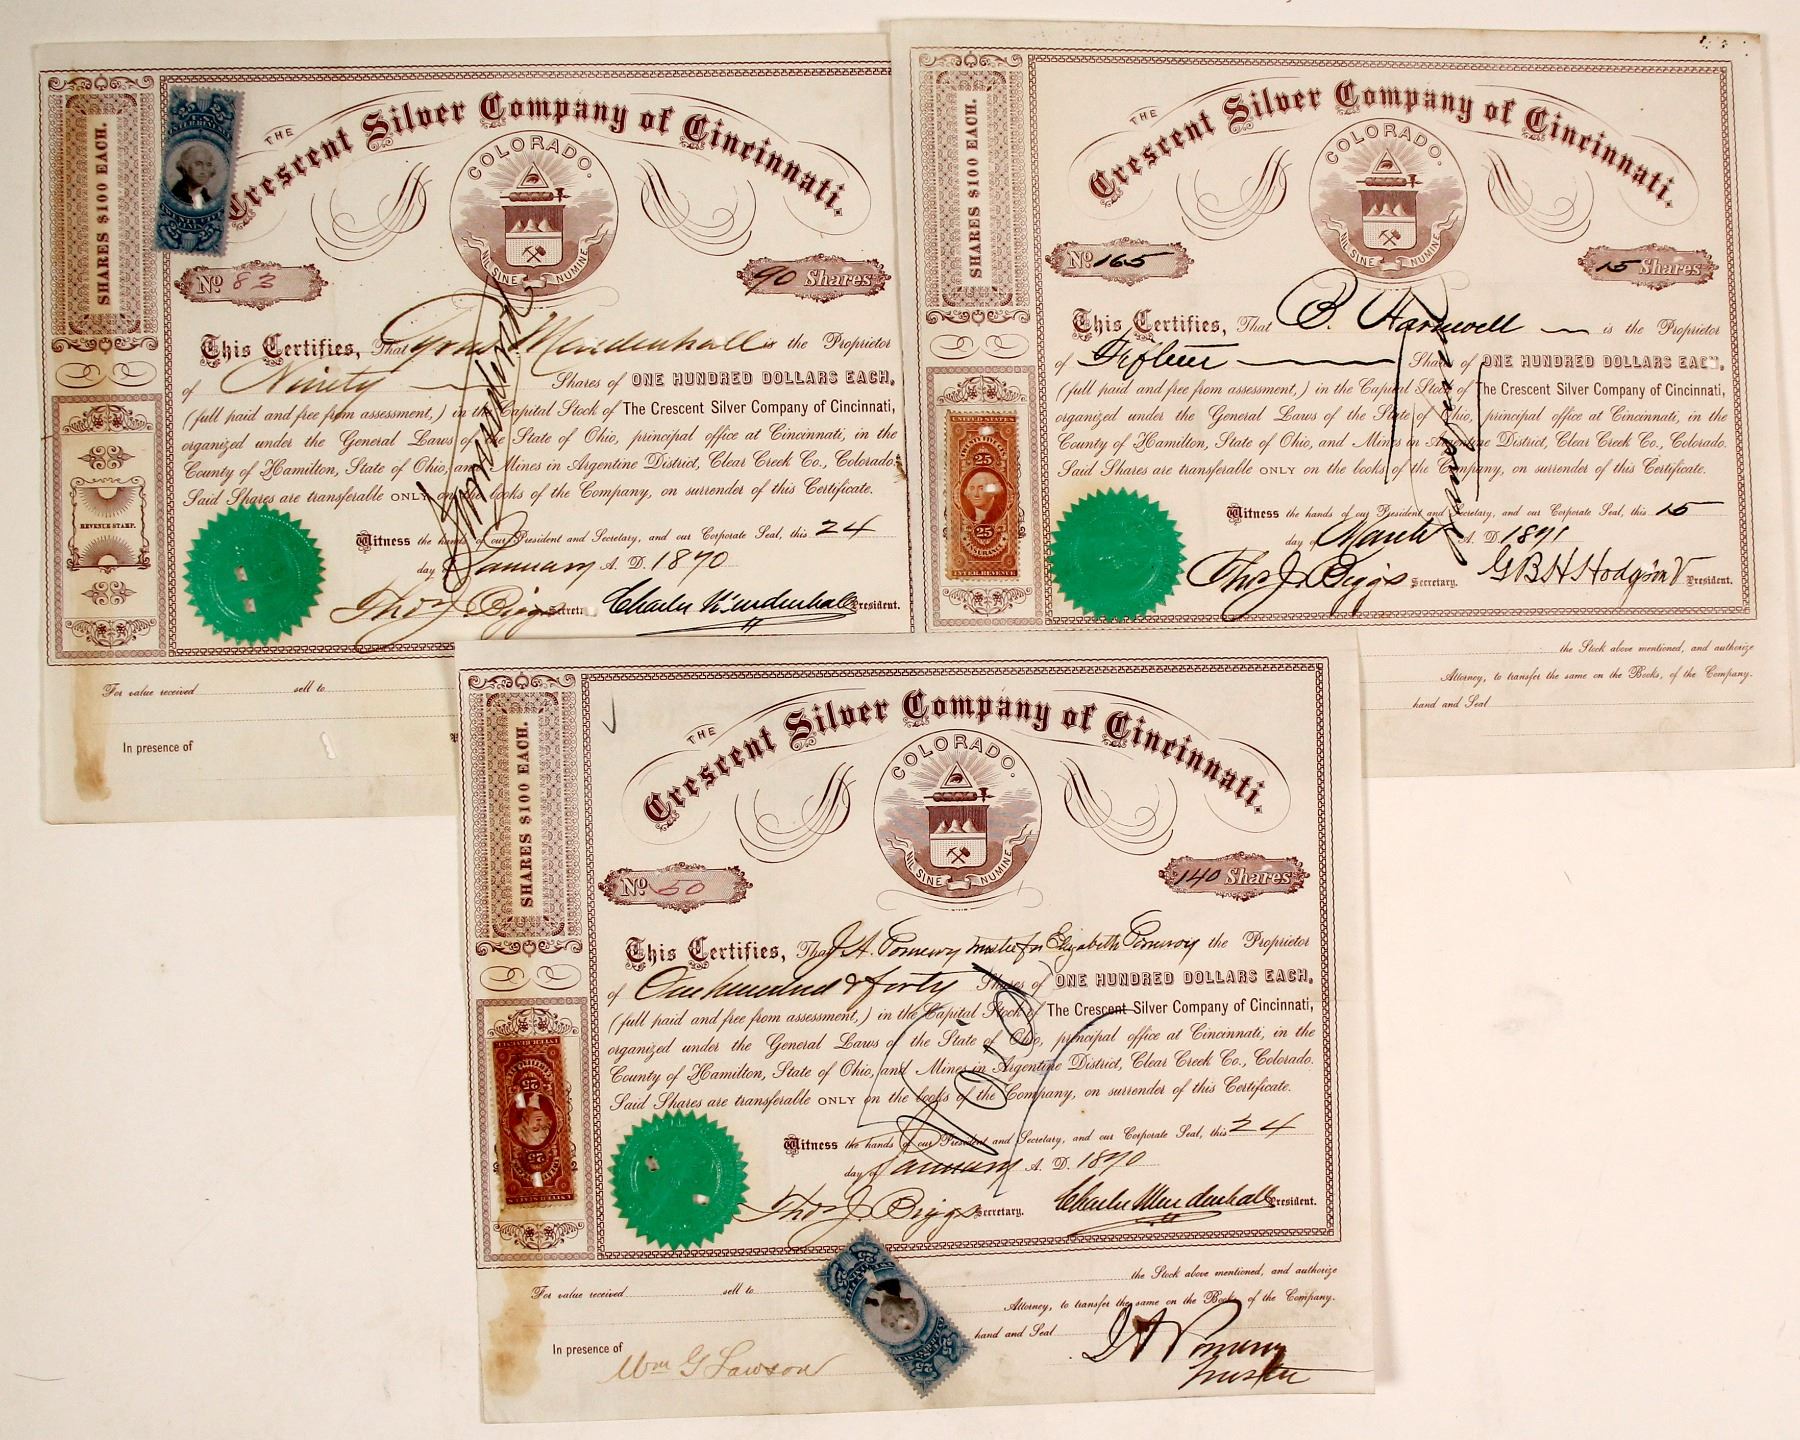 THE
Crescent Silver Company of Cincinnati.
COLORADO.
NIL SINE NUMINE
SHARES $100 EACH.
No 83
90 Shares
This Certifies, That Cyrus Mendenhall is the Proprietor
of Ninety Shares of ONE HUNDRED DOLLARS EACH,
(full paid and free from assessment,) in the Capital Stock of The Crescent Silver Company of Cincinnati,
organized under the General Laws of the State of Ohio, principal office at Cincinnati, in the
County of Hamilton, State of Ohio, and Mines in Argentine District, Clear Creek Co., Colorado.
Said Shares are transferable ONLY on the books of the Company, on surrender of this Certificate.
REVENUE STAMP.
Witness the hands of our President and Secretary, and our Corporate Seal, this 24
day of January A. D. 1870
Thos J. Biggs Secretary Charles Mendenhall President.
For value received sell to
In presence of
THE
Crescent Silver Company of Cincinnati.
COLORADO.
NIL SINE NUMINE
SHARES $100 EACH.
No 165
15 Shares
This Certifies, That B. Harwell is the Proprietor
of Fifteen Shares of ONE HUNDRED DOLLARS EACH,
(full paid and free from assessment,) in the Capital Stock of The Crescent Silver Company of Cincinnati,
organized under the General Laws of the State of Ohio, principal office at Cincinnati, in the
County of Hamilton, State of Ohio, and Mines in Argentine District, Clear Creek Co., Colorado.
Said Shares are transferable ONLY on the books of the Company, on surrender of this Certificate.
25
25
INSURANCE
INTER. REVENUE
Witness the hands of our President and Secretary, and our Corporate Seal, this 15
day of March A. D. 1871
Thos J. Biggs Secretary. G B H Hodgson V President.
the Stock above mentioned, and authorize
Attorney, to transfer the same on the Books, of the Company.
hand and Seal
THE
Crescent Silver Company of Cincinnati.
COLORADO.
NIL SINE NUMINE
SHARES $100 EACH.
No 50
140 Shares
This Certifies, That J. A. Pomeroy trustee for Elizabeth Pomeroy the Proprietor
of One hundred & forty Shares of ONE HUNDRED DOLLARS EACH,
(full paid and free from assessment,) in the Capital Stock of The Crescent Silver Company of Cincinnati,
organized under the General Laws of the State of Ohio, principal office at Cincinnati, in the
County of Hamilton, State of Ohio, and Mines in Argentine District, Clear Creek Co., Colorado.
Said Shares are transferable ONLY on the books of the Company, on surrender of this Certificate.
Void
Witness the hands of our President and Secretary, and our Corporate Seal, this 24
day of January A. D. 1870
Thos J. Biggs Secretary. Charles Mendenhall President.
For value received sell to the Stock above mentioned, and authorize
Attorney, to transfer the same on the Books of the Company.
hand and Seal
In presence of
Wm G Lawson
J A Pomeroy
Trustee